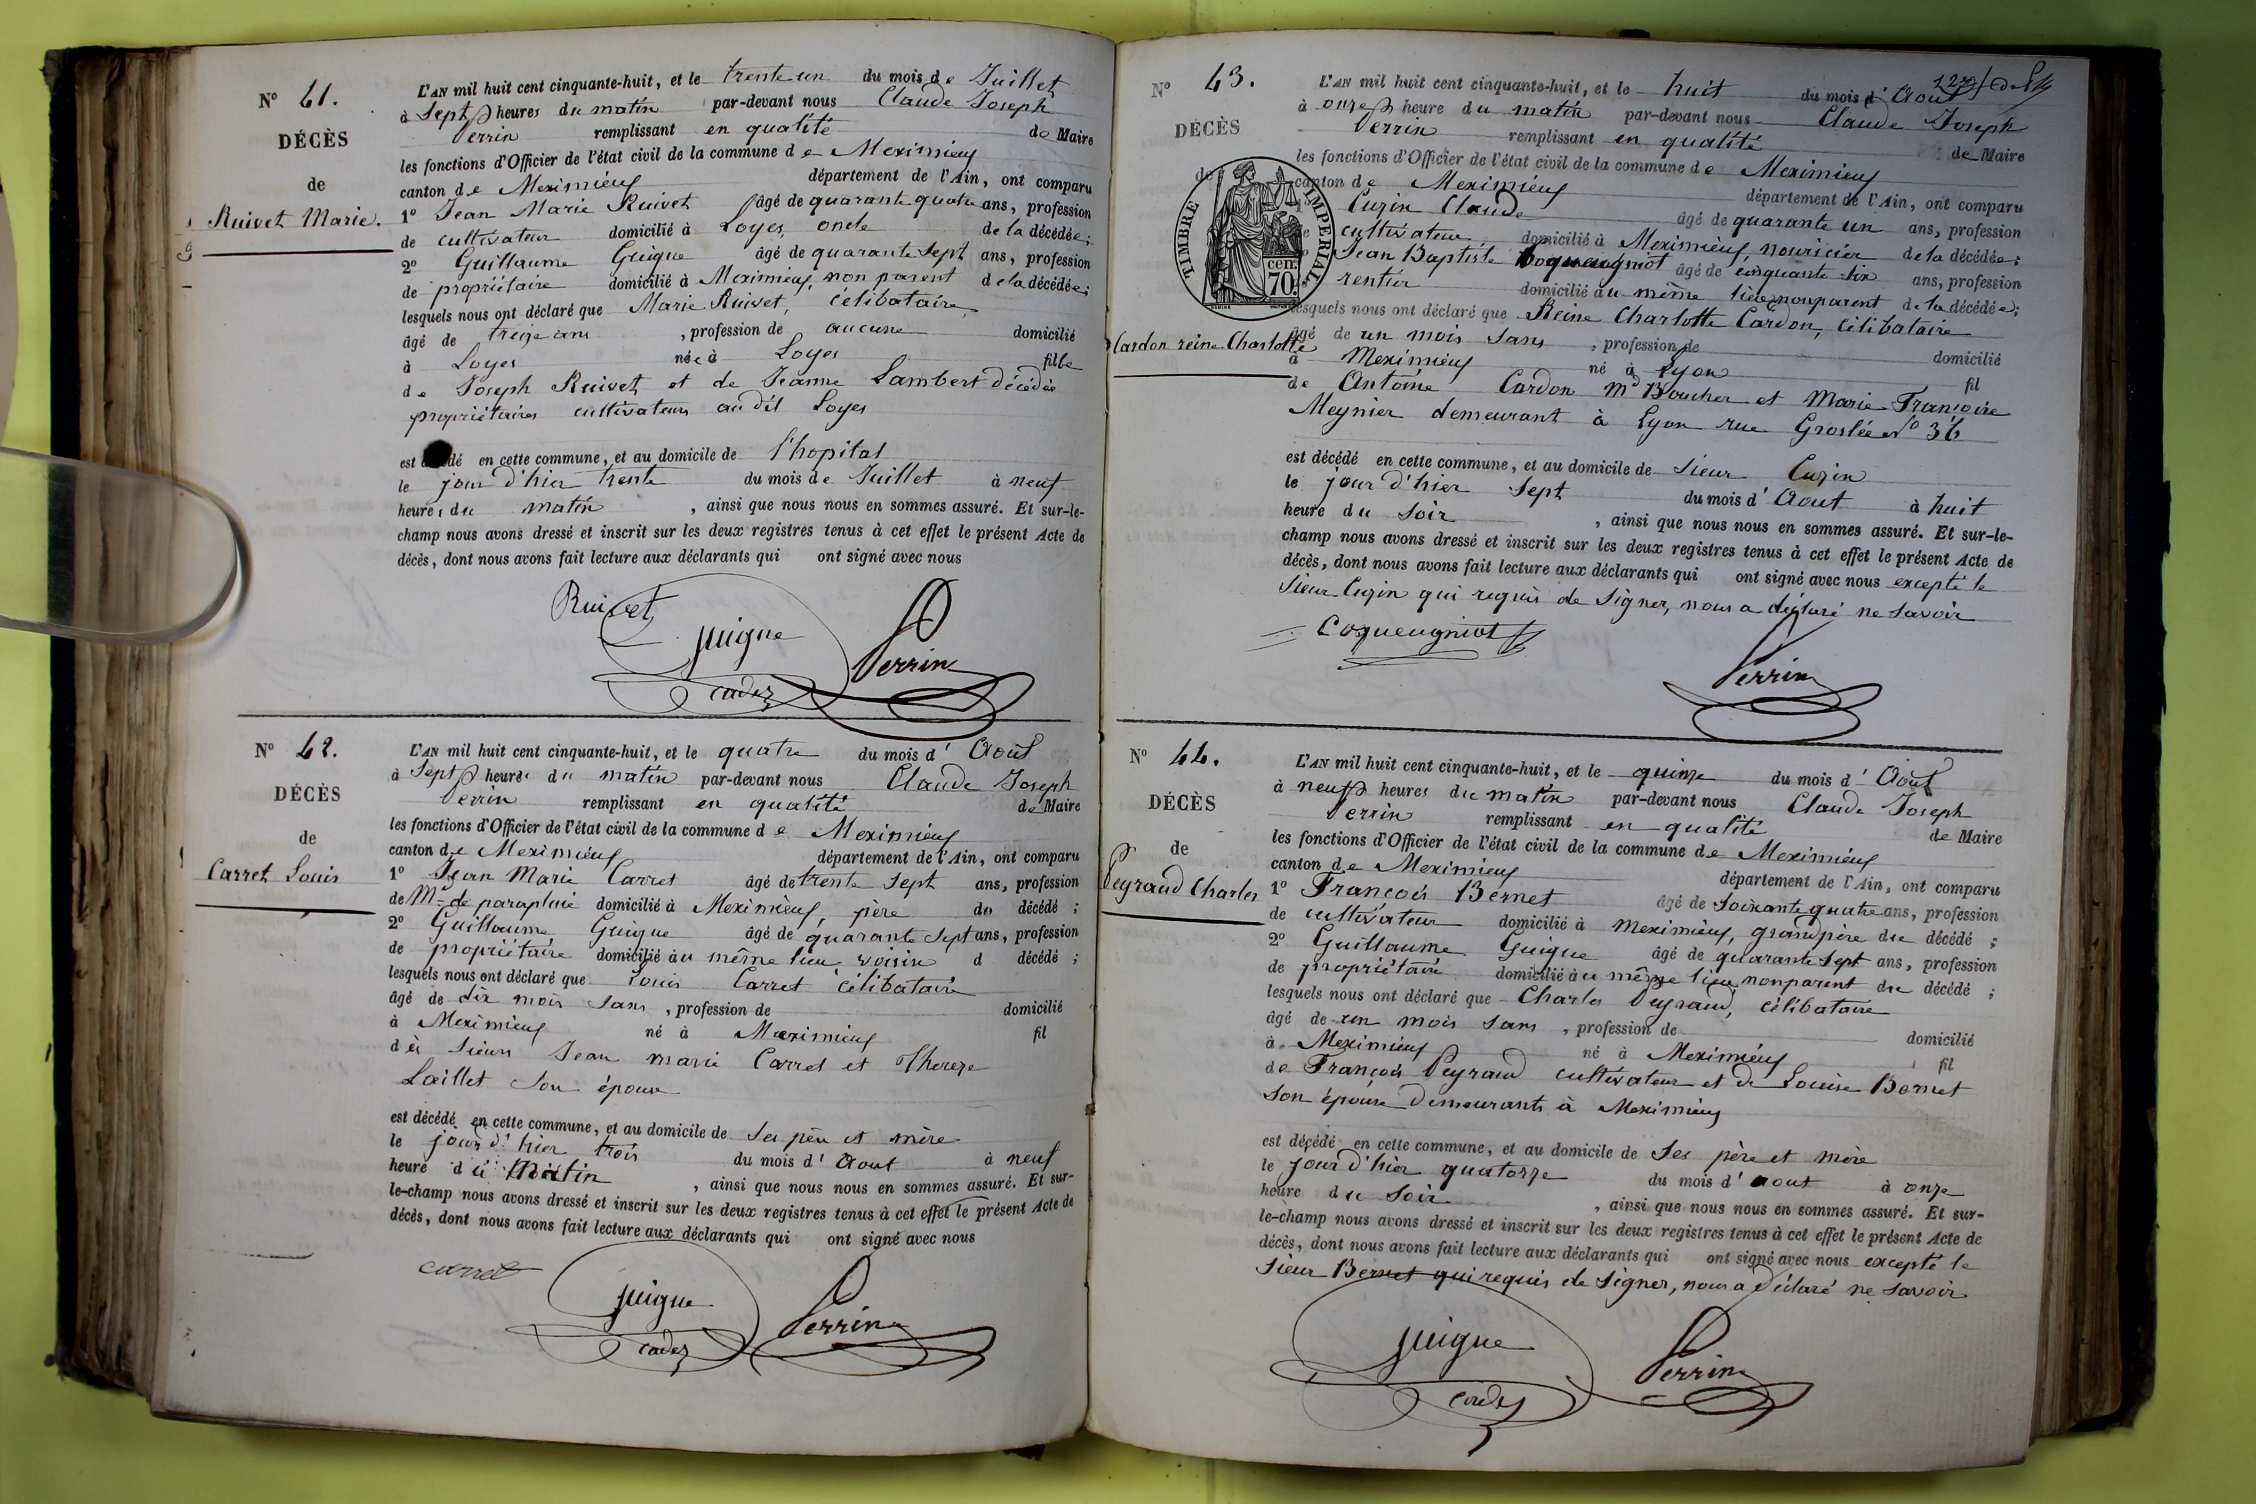 N° 41.
DÉCÈS
de
Ruivet Marie.
L'AN mil huit cent cinquante-huit, et le trente un du mois de Juillet
à Sept heures du matin par-devant nous Claude Joseph
Perrin remplissant en qualité de Maire
les fonctions d'Officier de l'état civil de la commune de Meximieux
canton de Meximieux département de l'Ain, ont comparu
1° Jean Marie Ruivet âgé de quarante quatre ans, profession
de cultivateur domicilié à Loyes, oncle de la décédée;
2° Guillaume Guigue âgé de quarante sept ans, profession
de propriétaire domicilié à Meximieux, non parent de la décédée;
lesquels nous ont déclaré que Marie Ruivet, célibataire,
âgé de treize ans, profession de aucune domicilié
à Loyes née à Loyes fille
de Joseph Ruivet et de Jeanne Lambert décédée
propriétaires cultivateurs au dit Loyes
est décédé en cette commune, et au domicile de l'hopital
le jour d'hier trente du mois de Juillet à neuf
heures du matin, ainsi que nous nous en sommes assuré. Et sur-le-
champ nous avons dressé et inscrit sur les deux registres tenus à cet effet le présent Acte de
décès, dont nous avons fait lecture aux déclarants qui ont signé avec nous
Ruivet
Guigue
cadet
Perrin
N° 42.
DÉCÈS
de
Carret Louis
L'AN mil huit cent cinquante-huit, et le quatre du mois d'Août
à Sept heures du matin par-devant nous Claude Joseph
Perrin remplissant en qualité de Maire
les fonctions d'Officier de l'état civil de la commune de Meximieux
canton de Meximieux département de l'Ain, ont comparu
1° Jean Marie Carret âgé de trente sept ans, profession
de Md de parapluie domicilié à Meximieux, père du décédé;
2° Guillaume Guigue âgé de quarante sept ans, profession
de propriétaire domicilié au même lieu voisin d décédé;
lesquels nous ont déclaré que Louis Carret célibataire
âgé de dix mois sans, profession de domicilié
à Meximieux né à Meximieux fil
des Sieurs Jean marie Carret et Thereze
Laillet son épouse
est décédé en cette commune, et au domicile de ses père et mère
le jour d'hier trois du mois d'Aout à neuf
heure du Matin, ainsi que nous nous en sommes assuré. Et sur-
le-champ nous avons dressé et inscrit sur les deux registres tenus à cet effet le présent Acte de
décès, dont nous avons fait lecture aux déclarants qui ont signé avec nous
carret
Guigue
cadet
Perrin
N° 43.
DÉCÈS
de
TIMBRE IMPERIAL
70. cen.
Cardon reine Charlotte
L'AN mil huit cent cinquante-huit, et le huit du mois d'Aout
à onze heure du matin par-devant nous Claude Joseph
Perrin remplissant en qualité de Maire
les fonctions d'Officier de l'état civil de la commune de Meximieux
canton de Meximieux département de l'Ain, ont comparu
Cuzin Claude âgé de quarante un ans, profession
de cultivateur domicilié à Meximieux, nouricier de la décédée;
Jean Baptiste Coqueugniot âgé de cinquante six ans, profession
rentier domicilié au même lieu non parent de la décédée;
lesquels nous ont déclaré que Reine Charlotte Cardon, célibataire
âgé de un mois sans, profession de domicilié
à Meximieux né à Lyon fil
de Antoine Cardon Md Boucher et Marie Françoise
Meynier demeurant à Lyon rue Groslée N° 36
est décédé en cette commune, et au domicile de Sieur Cuzin
le jour d'hier sept du mois d'Aout à huit
heure du Soir, ainsi que nous nous en sommes assuré. Et sur-le-
champ nous avons dressé et inscrit sur les deux registres tenus à cet effet le présent Acte de
décès, dont nous avons fait lecture aux déclarants qui ont signé avec nous excepté le
Sieur Cuzin qui requis de signer, nous a déclaré ne savoir
Coqueugniot
Perrin
N° 44.
DÉCÈS
de
Peyraud Charles
L'AN mil huit cent cinquante-huit, et le quinze du mois d'Août
à neuf heures du matin par-devant nous Claude Joseph
Perrin remplissant en qualité de Maire
les fonctions d'Officier de l'état civil de la commune de Meximieux
canton de Meximieux département de l'Ain, ont comparu
1° François Bernet âgé de Soixante quatre ans, profession
de cultivateur domicilié à Meximieux, grand père du décédé;
2° Guillaume Guigue âgé de quarante sept ans, profession
de propriétaire domicilié au même lieu non parent du décédé;
lesquels nous ont déclaré que Charles Peyraud, célibataire
âgé de un mois sans, profession de domicilié
à Meximieux né à Meximieux fil
de François Peyraud cultivateur et de Louise Bernet
son épouse demeurants à Meximieux
est décédé en cette commune, et au domicile de ses père et mère
le jour d'hier quatorze du mois d'aout à onze
heure du Soir, ainsi que nous nous en sommes assuré. Et sur-
le-champ nous avons dressé et inscrit sur les deux registres tenus à cet effet le présent Acte de
décès, dont nous avons fait lecture aux déclarants qui ont signé avec nous excepté le
Sieur Bernet qui requis de signer, nous a déclaré ne savoir
Guigue
cadet
Perrin